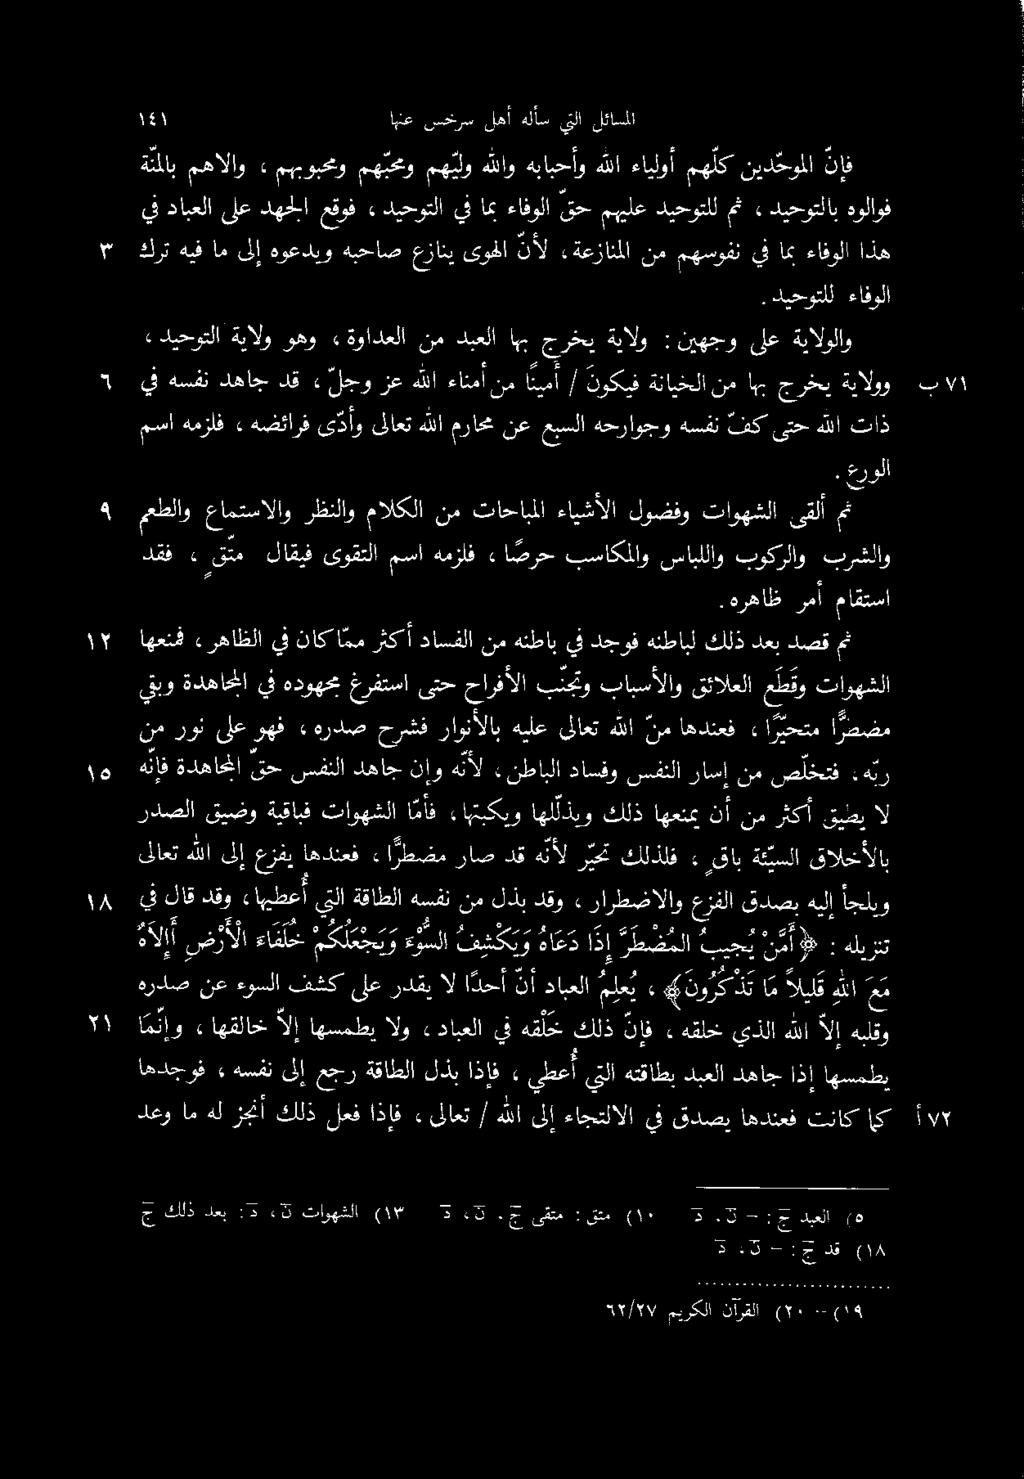 المسائل التي سأله أهل سرخس عنها ١٤١
فإنّ الموحّدين كلّهم أولياء الله وأحبابه والله وليّهم ومحبّهم ومحبوبهم ، والاهم بالمنّة
فوالوه بالتوحيد ، ثم للتوحيد عليهم حقّ الوفاء بما في التوحيد ، فوقع الجهد على العباد في
هذا الوفاء بما في نفوسهم من المنازعة، لأنّ الهوى ينازع صاحبه ويدعوه إلى ما فيه ترك ٣
الوفاء للتوحيد.
والولاية على وجهين: ولاية يخرج بها العبد من العداوة، وهو ولاية التوحيد،
٧١ ب وولاية يخرج بها من الخيانة فيكونَ / أمينًا من أمناء الله عزّ وجلّ، قد جاهد نفسه في ٦
ذات الله حتى كفّ نفسه وجوارحه السبع عن محارم الله تعالى وأدّى فرائضه ، فلزمه اسم
الورع.
ثم ألقى الشهوات وفضول الأشياء المباحات من الكلام والنظر والاستماع والطعم ٩
والشرب والركوب واللباس والمكاسب حرصًا ، فلزمه اسم التقوى فيقال متّقٍ ، فقد
استقام أمر ظاهره.
ثم قصد بعد ذلك لباطنه فوجد في باطنه من الفساد أكثر ممّا كان في الظاهر، فمنعها ١٢
الشهوات وقَطَع العلائق والأسباب وتجنّب الأفراح حتى استفرغ مجهوده في المجاهدة وبقي
مضطرًّا متحيّرًا، فعندها منّ الله تعالى عليه بالأنوار فشرح صدره، فهو على نور من
ربّه، فتخلّص من إسار النفس وفساد الباطن، لأنّه وإن جاهد النفس حقّ المجاهدة فإنّه ١٥
لا يطيق أكثر من أن يمنعها ذلك ويذلّلها ويكبتها، فأمّا الشهوات فباقية وضيق الصدر
بالأخلاق السيّئة باقٍ، فلذلك تحيّر لأنّه قد صار مضطرًّا، فعندها يفزع إلى الله تعالى
ويلجأ إليه بصدق الفزع والاضطرار، وقد بذل من نفسه الطاقة التي أُعطيها، وقد قال في ١٨
تنزيله : ﴿أَمَّنْ يُجيبُ المُضْطَرَّ إذَا دَعَاهُ وَيَكْشِفُ السُّوْءَ وَيَجْعَلُكُمْ خُلَفَاءَ الأَرْضِ أَإِلَاهٌ
مَعَ اللهِ قَليلاً مَا تَذْكُرُونَ﴾ ، يُعلِمُ العباد أنّ أحدًا لا يقدر على كشف السوء عن صدره
وقلبه إلاّ الله الذي خلقه، فإنّ ذلك خَلْقه في العباد، ولا يطمسها إلاّ خالقها، وإنّمَا ٢١
يطمسها إذا جاهد العبد بطاقته التي أُعطي، فإذا بذل الطاقة رجع إلى نفسه، فوجدها
٧٢ أ كما كانت فعندها يصدق في الالتجاء إلى الله / تعالى، فإذا فعل ذلك أنجز له ما وعد
٥) العبد ج: - ن، د ١٠) متق: متقى ج، ن، د ١٣) الشهوات ن، د: بعد ذلك ج
١٨) قد ج: - ن، د
١٩) -- ٢٠) القرآن الكريم ٦٢/٢٧